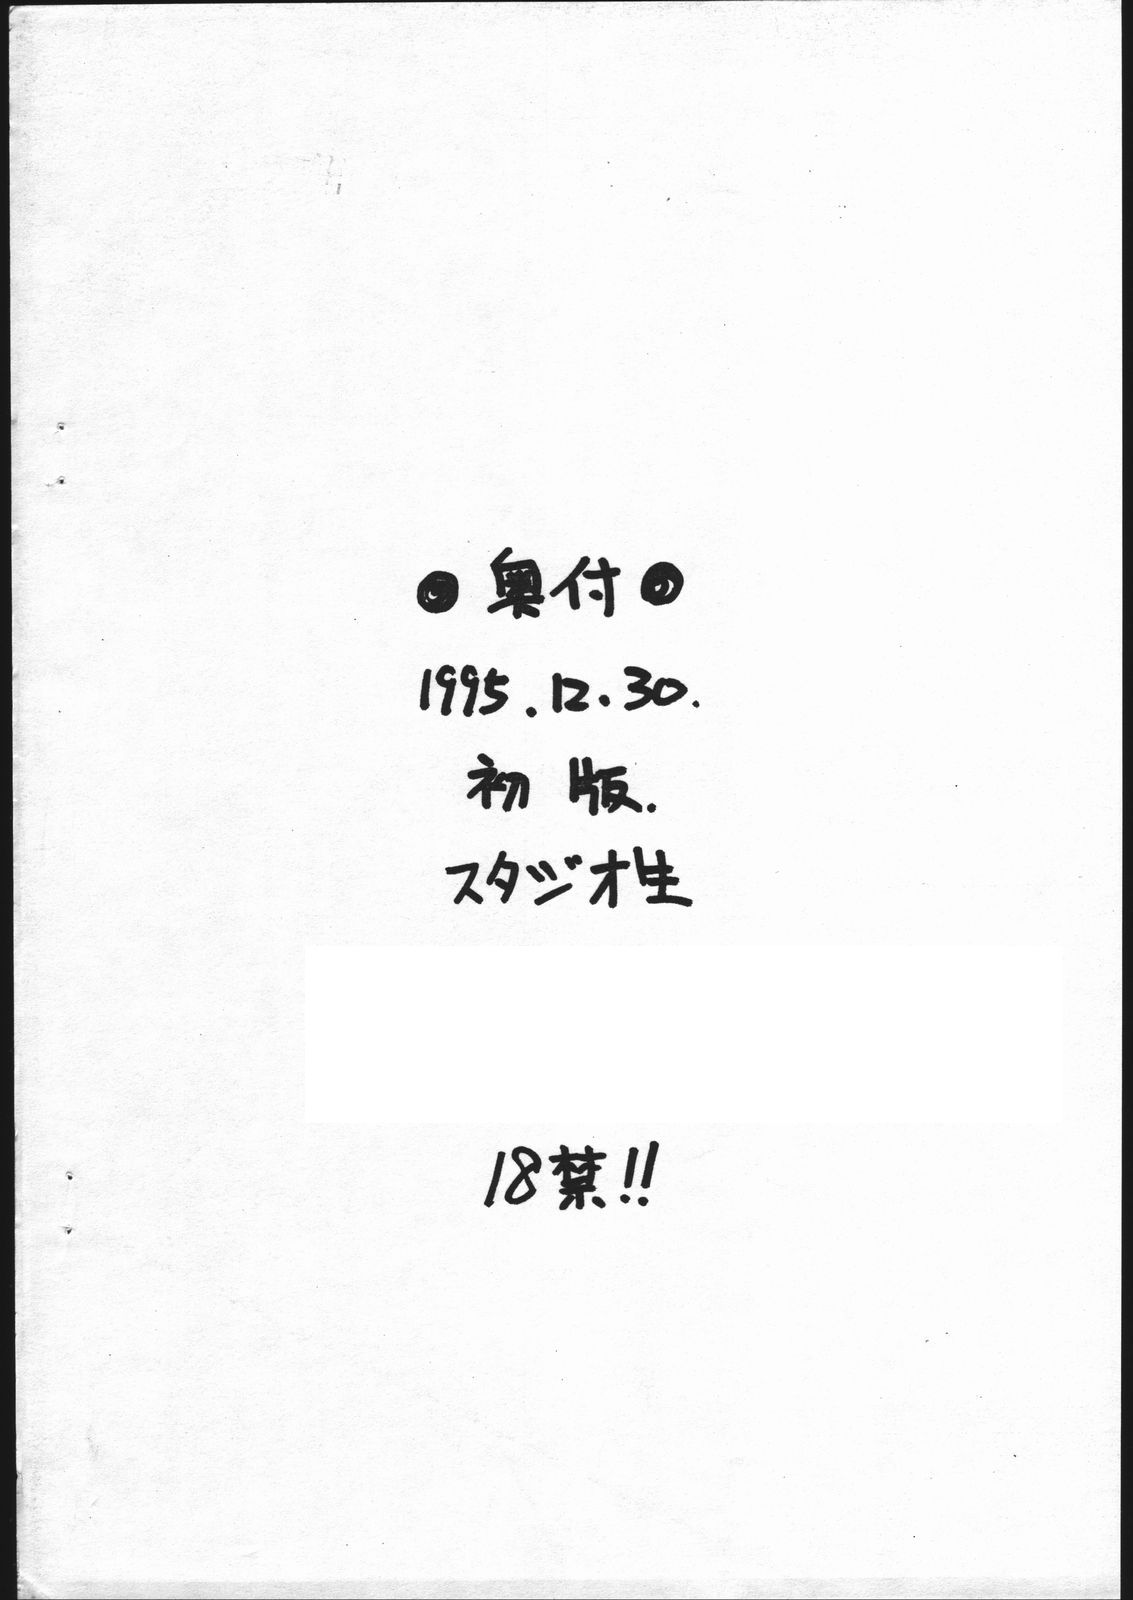 ◎奥付◎
1995.12.30.
初版.
スタジオ生
18禁!!